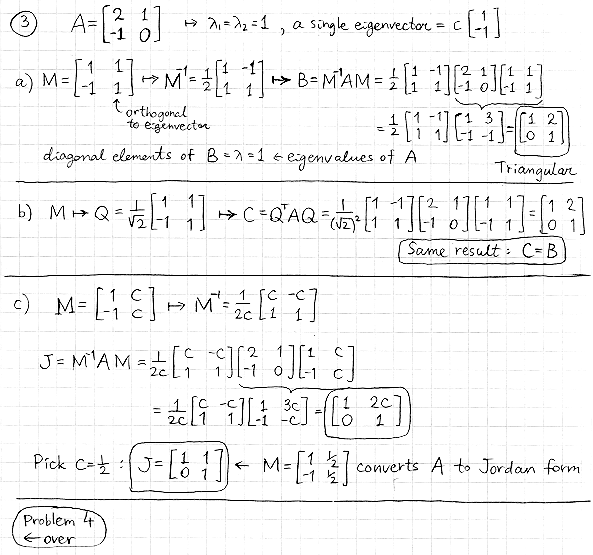 ③ A = [2 1; -1 0] ↦ λ₁=λ₂=1, a single eigenvector = c [1; -1]
a) M = [1 1; -1 1] ↦ M⁻¹ = 1/2 [1 -1; 1 1] ↦ B = M⁻¹AM = 1/2 [1 -1; 1 1][2 1; -1 0][1 1; -1 1]
↑ orthogonal
to eigenvector
= 1/2 [1 -1; 1 1][1 3; -1 -1] = [1 2; 0 1]
diagonal elements of B = λ = 1 ← eigenvalues of A
Triangular
b) M ↦ Q = 1/√2 [1 1; -1 1] ↦ C = QᵀAQ = 1/(√2)² [1 -1; 1 1][2 1; -1 0][1 1; -1 1] = [1 2; 0 1]
Same result: C=B
c) M = [1 c; -1 c] ↦ M⁻¹ = 1/2c [c -c; 1 1]
J = M⁻¹AM = 1/2c [c -c; 1 1][2 1; -1 0][1 c; -1 c]
= 1/2c [c -c; 1 1][1 3c; -1 -c] = [1 2c; 0 1]
Pick c=1/2 : J = [1 1; 0 1] ← M = [1 1/2; -1 1/2] converts A to Jordan form
Problem 4
← over